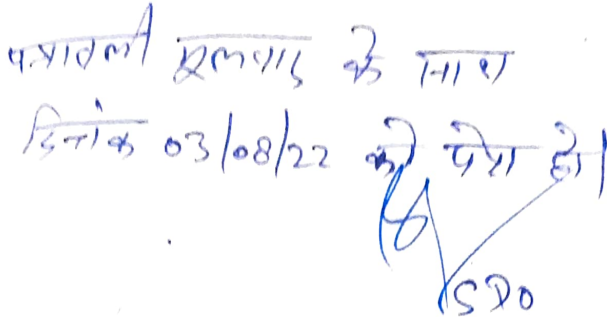 पत्रावली मूलवाद के साथ
दिनांक 03/08/22 को पेश हो।
SDO